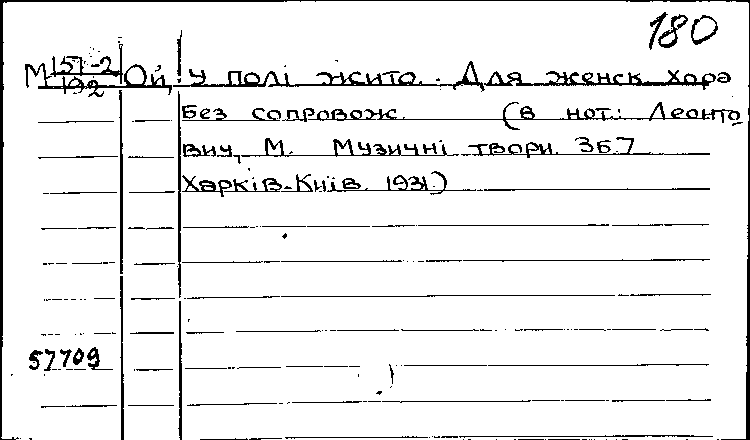 180
М 151-2/192 Ой, у полі жито. Для женск. хора
без сопровож. (в нот.: Леонто
вич, М. Музичні твори. Зб.7
Харків-Київ. 1931.)
57709